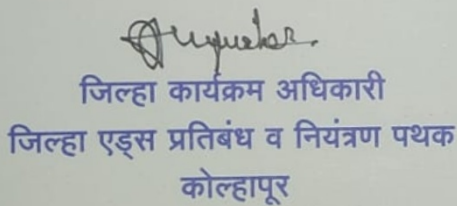 जिल्हा कार्यक्रम अधिकारी
जिल्हा एड्स प्रतिबंध व नियंत्रण पथक
कोल्हापूर